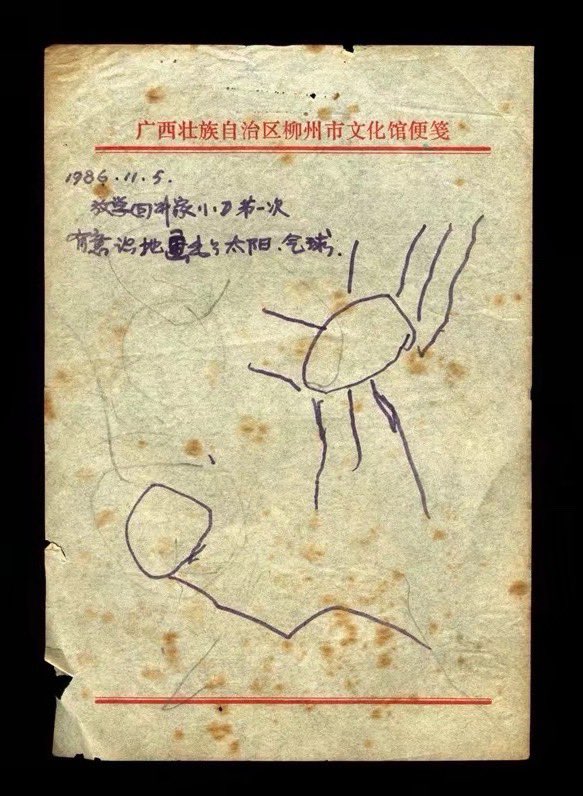 广西壮族自治区柳州市文化馆便笺
1986.11.5.
放学回来家小刀第一次
有意识地画出了太阳.气球.